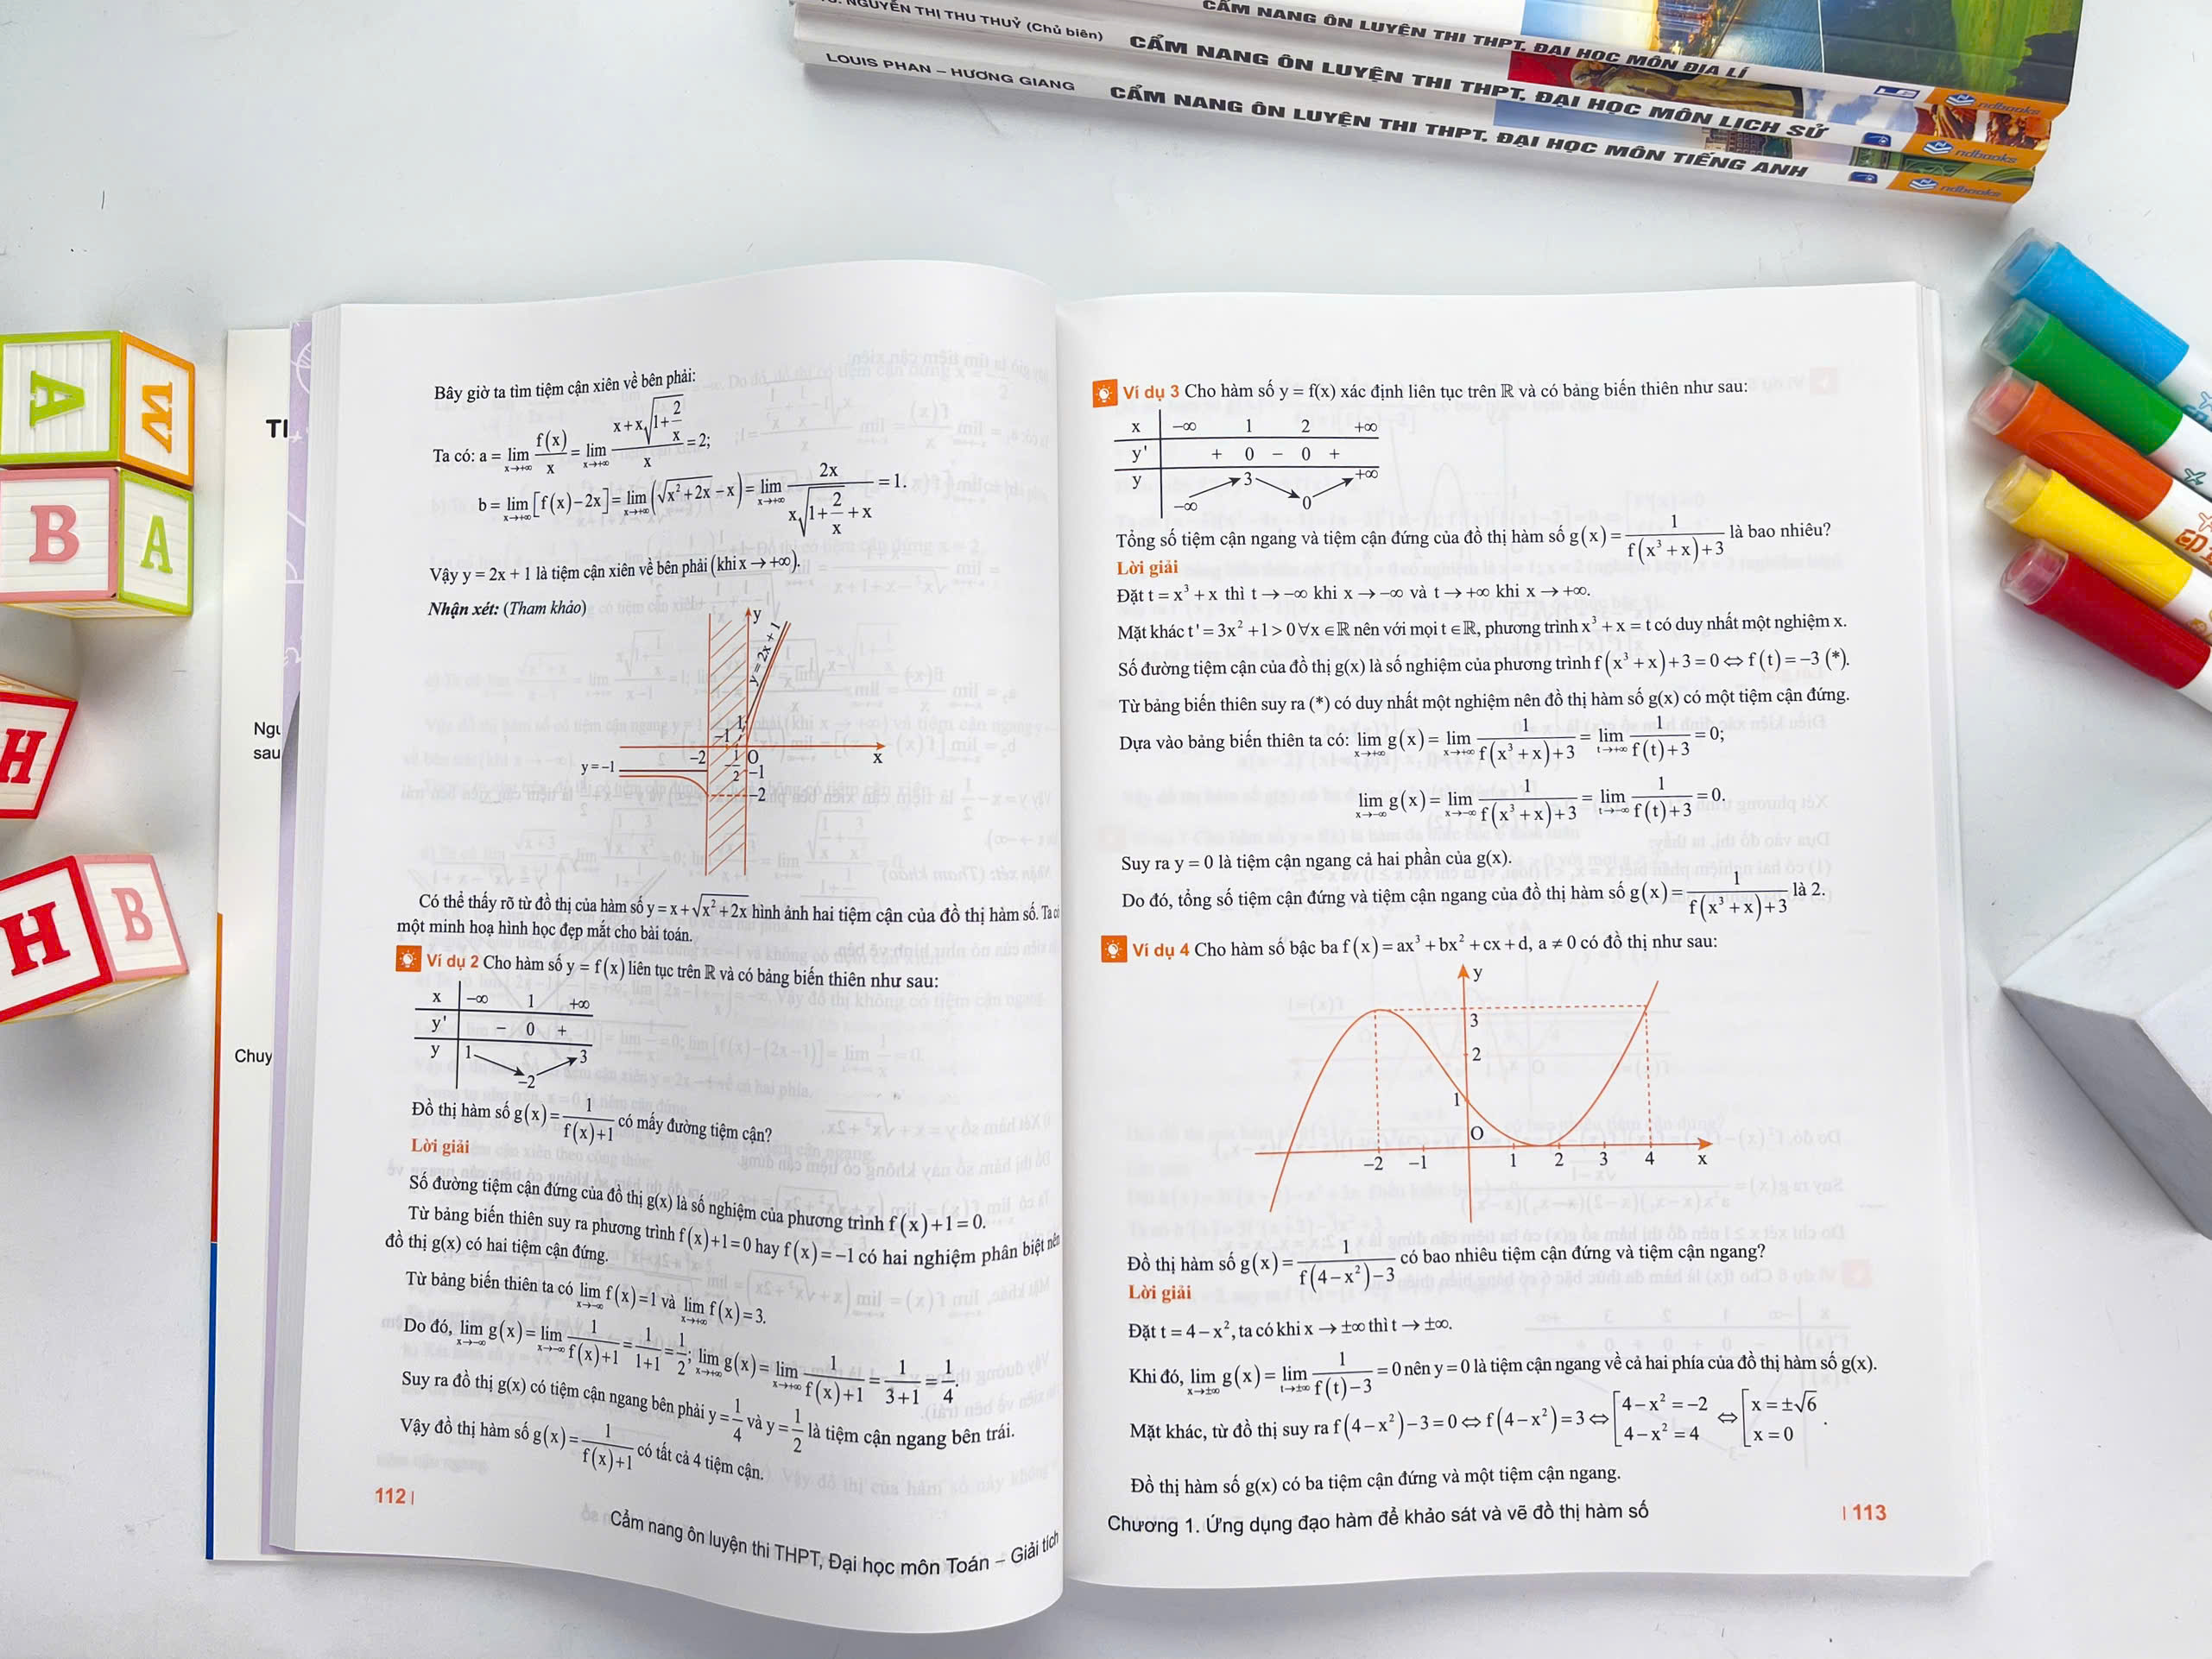 CẨM NANG ÔN LUYỆN THI THPT, ĐẠI HỌC MÔN ĐỊA LÍ
NGUYỄN THỊ THU THUỶ (Chủ biên) CẨM NANG ÔN LUYỆN THI THPT, ĐẠI HỌC MÔN LỊCH SỬ ndbooks
LOUIS PHAN – HƯƠNG GIANG CẨM NANG ÔN LUYỆN THI THPT, ĐẠI HỌC MÔN TIẾNG ANH ndbooks
A
W
B
A
H
H
B
Chuy
sau
Bây giờ ta tìm tiệm cận xiên về bên phải:
Ta có: a = lim_{x→+∞} f(x)/x = lim_{x→+∞} (x+x√(1+2/x))/x = 2;
b = lim_{x→+∞} [f(x)−2x] = lim_{x→+∞} (√(x²+2x) −x) = lim_{x→+∞} 2x/(x√(1+2/x)+x) = 1.
Vậy y = 2x + 1 là tiệm cận xiên về bên phải (khi x → +∞).
Nhận xét: (Tham khảo)
y
y = 2x + 1
1
−1
−2
−1/2
O
x
y = −1
−1
−2
Có thể thấy rõ từ đồ thị của hàm số y = x + √(x² + 2x) hình ảnh hai tiệm cận của đồ thị hàm số. Ta có
một minh hoạ hình học đẹp mắt cho bài toán.
Ví dụ 2 Cho hàm số y = f(x) liên tục trên ℝ và có bảng biến thiên như sau:
x −∞ 1 +∞
y' − 0 +
y 1 −2 3
Đồ thị hàm số g(x) = 1/(f(x)+1) có mấy đường tiệm cận?
Lời giải
Số đường tiệm cận đứng của đồ thị g(x) là số nghiệm của phương trình f(x)+1 = 0.
Từ bảng biến thiên suy ra phương trình f(x)+1 = 0 hay f(x) = −1 có hai nghiệm phân biệt nên
đồ thị g(x) có hai tiệm cận đứng.
Từ bảng biến thiên ta có lim_{x→−∞} f(x) = 1 và lim_{x→+∞} f(x) = 3.
Do đó, lim_{x→−∞} g(x) = lim_{x→−∞} 1/(f(x)+1) = 1/(1+1) = 1/2; lim_{x→+∞} g(x) = lim_{x→+∞} 1/(f(x)+1) = 1/(3+1) = 1/4.
Suy ra đồ thị g(x) có tiệm cận ngang bên phải y = 1/4 và y = 1/2 là tiệm cận ngang bên trái.
Vậy đồ thị hàm số g(x) = 1/(f(x)+1) có tất cả 4 tiệm cận.
112 |
Cẩm nang ôn luyện thi THPT, Đại học môn Toán – Giải tích
Ví dụ 3 Cho hàm số y = f(x) xác định liên tục trên ℝ và có bảng biến thiên như sau:
x −∞ 1 2 +∞
y' + 0 − 0 +
y −∞ 3 0 +∞
Tổng số tiệm cận ngang và tiệm cận đứng của đồ thị hàm số g(x) = 1/(f(x³+x)+3) là bao nhiêu?
Lời giải
Đặt t = x³ + x thì t → −∞ khi x → −∞ và t → +∞ khi x → +∞.
Mặt khác t' = 3x² +1 > 0 ∀x ∈ ℝ nên với mọi t ∈ ℝ, phương trình x³ + x = t có duy nhất một nghiệm x.
Số đường tiệm cận của đồ thị g(x) là số nghiệm của phương trình f(x³+x)+3 = 0 ⇔ f(t) = −3 (*).
Từ bảng biến thiên suy ra (*) có duy nhất một nghiệm nên đồ thị hàm số g(x) có một tiệm cận đứng.
Dựa vào bảng biến thiên ta có: lim_{x→+∞} g(x) = lim_{x→+∞} 1/(f(x³+x)+3) = lim_{t→+∞} 1/(f(t)+3) = 0;
lim_{x→−∞} g(x) = lim_{x→−∞} 1/(f(x³+x)+3) = lim_{t→−∞} 1/(f(t)+3) = 0.
Suy ra y = 0 là tiệm cận ngang cả hai phần của g(x).
Do đó, tổng số tiệm cận đứng và tiệm cận ngang của đồ thị hàm số g(x) = 1/(f(x³+x)+3) là 2.
Ví dụ 4 Cho hàm số bậc ba f(x) = ax³ + bx² + cx + d, a ≠ 0 có đồ thị như sau:
y
3
2
1
O
−2 −1 1 2 3 4 x
Đồ thị hàm số g(x) = 1/(f(4−x²)−3) có bao nhiêu tiệm cận đứng và tiệm cận ngang?
Lời giải
Đặt t = 4 − x², ta có khi x → ±∞ thì t → ±∞.
Khi đó, lim_{x→±∞} g(x) = lim_{t→±∞} 1/(f(t)−3) = 0 nên y = 0 là tiệm cận ngang về cả hai phía của đồ thị hàm số g(x).
Mặt khác, từ đồ thị suy ra f(4−x²)−3 = 0 ⇔ f(4−x²) = 3 ⇔ [4−x² = −2; 4−x² = 4 ⇔ [x = ±√6; x = 0.
Đồ thị hàm số g(x) có ba tiệm cận đứng và một tiệm cận ngang.
Chương 1. Ứng dụng đạo hàm để khảo sát và vẽ đồ thị hàm số
| 113